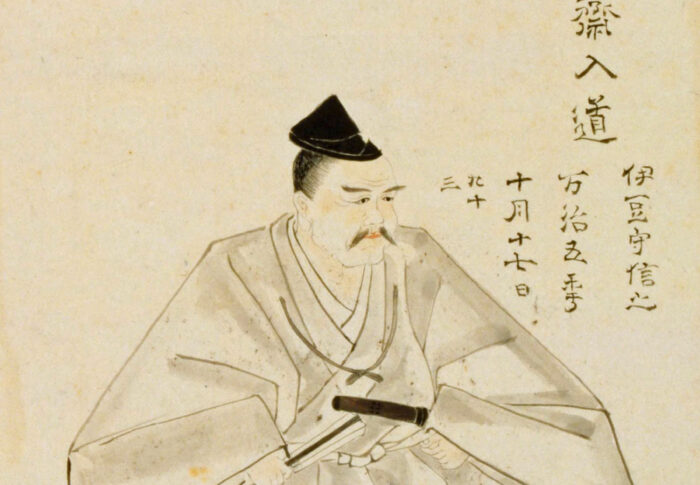 齋入道
伊豆守信之
万治五年
十月十七日
九十
三